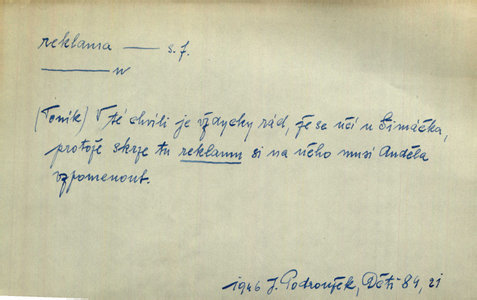 reklama — s. f.
— u
(Toník) V té chvíli je vždycky rád, že se učí u Šimáčka,
protože skrze tu reklamu si na něho musí Anděla
vzpomenout.
1946 J. Podroužek, Děti 84, 21